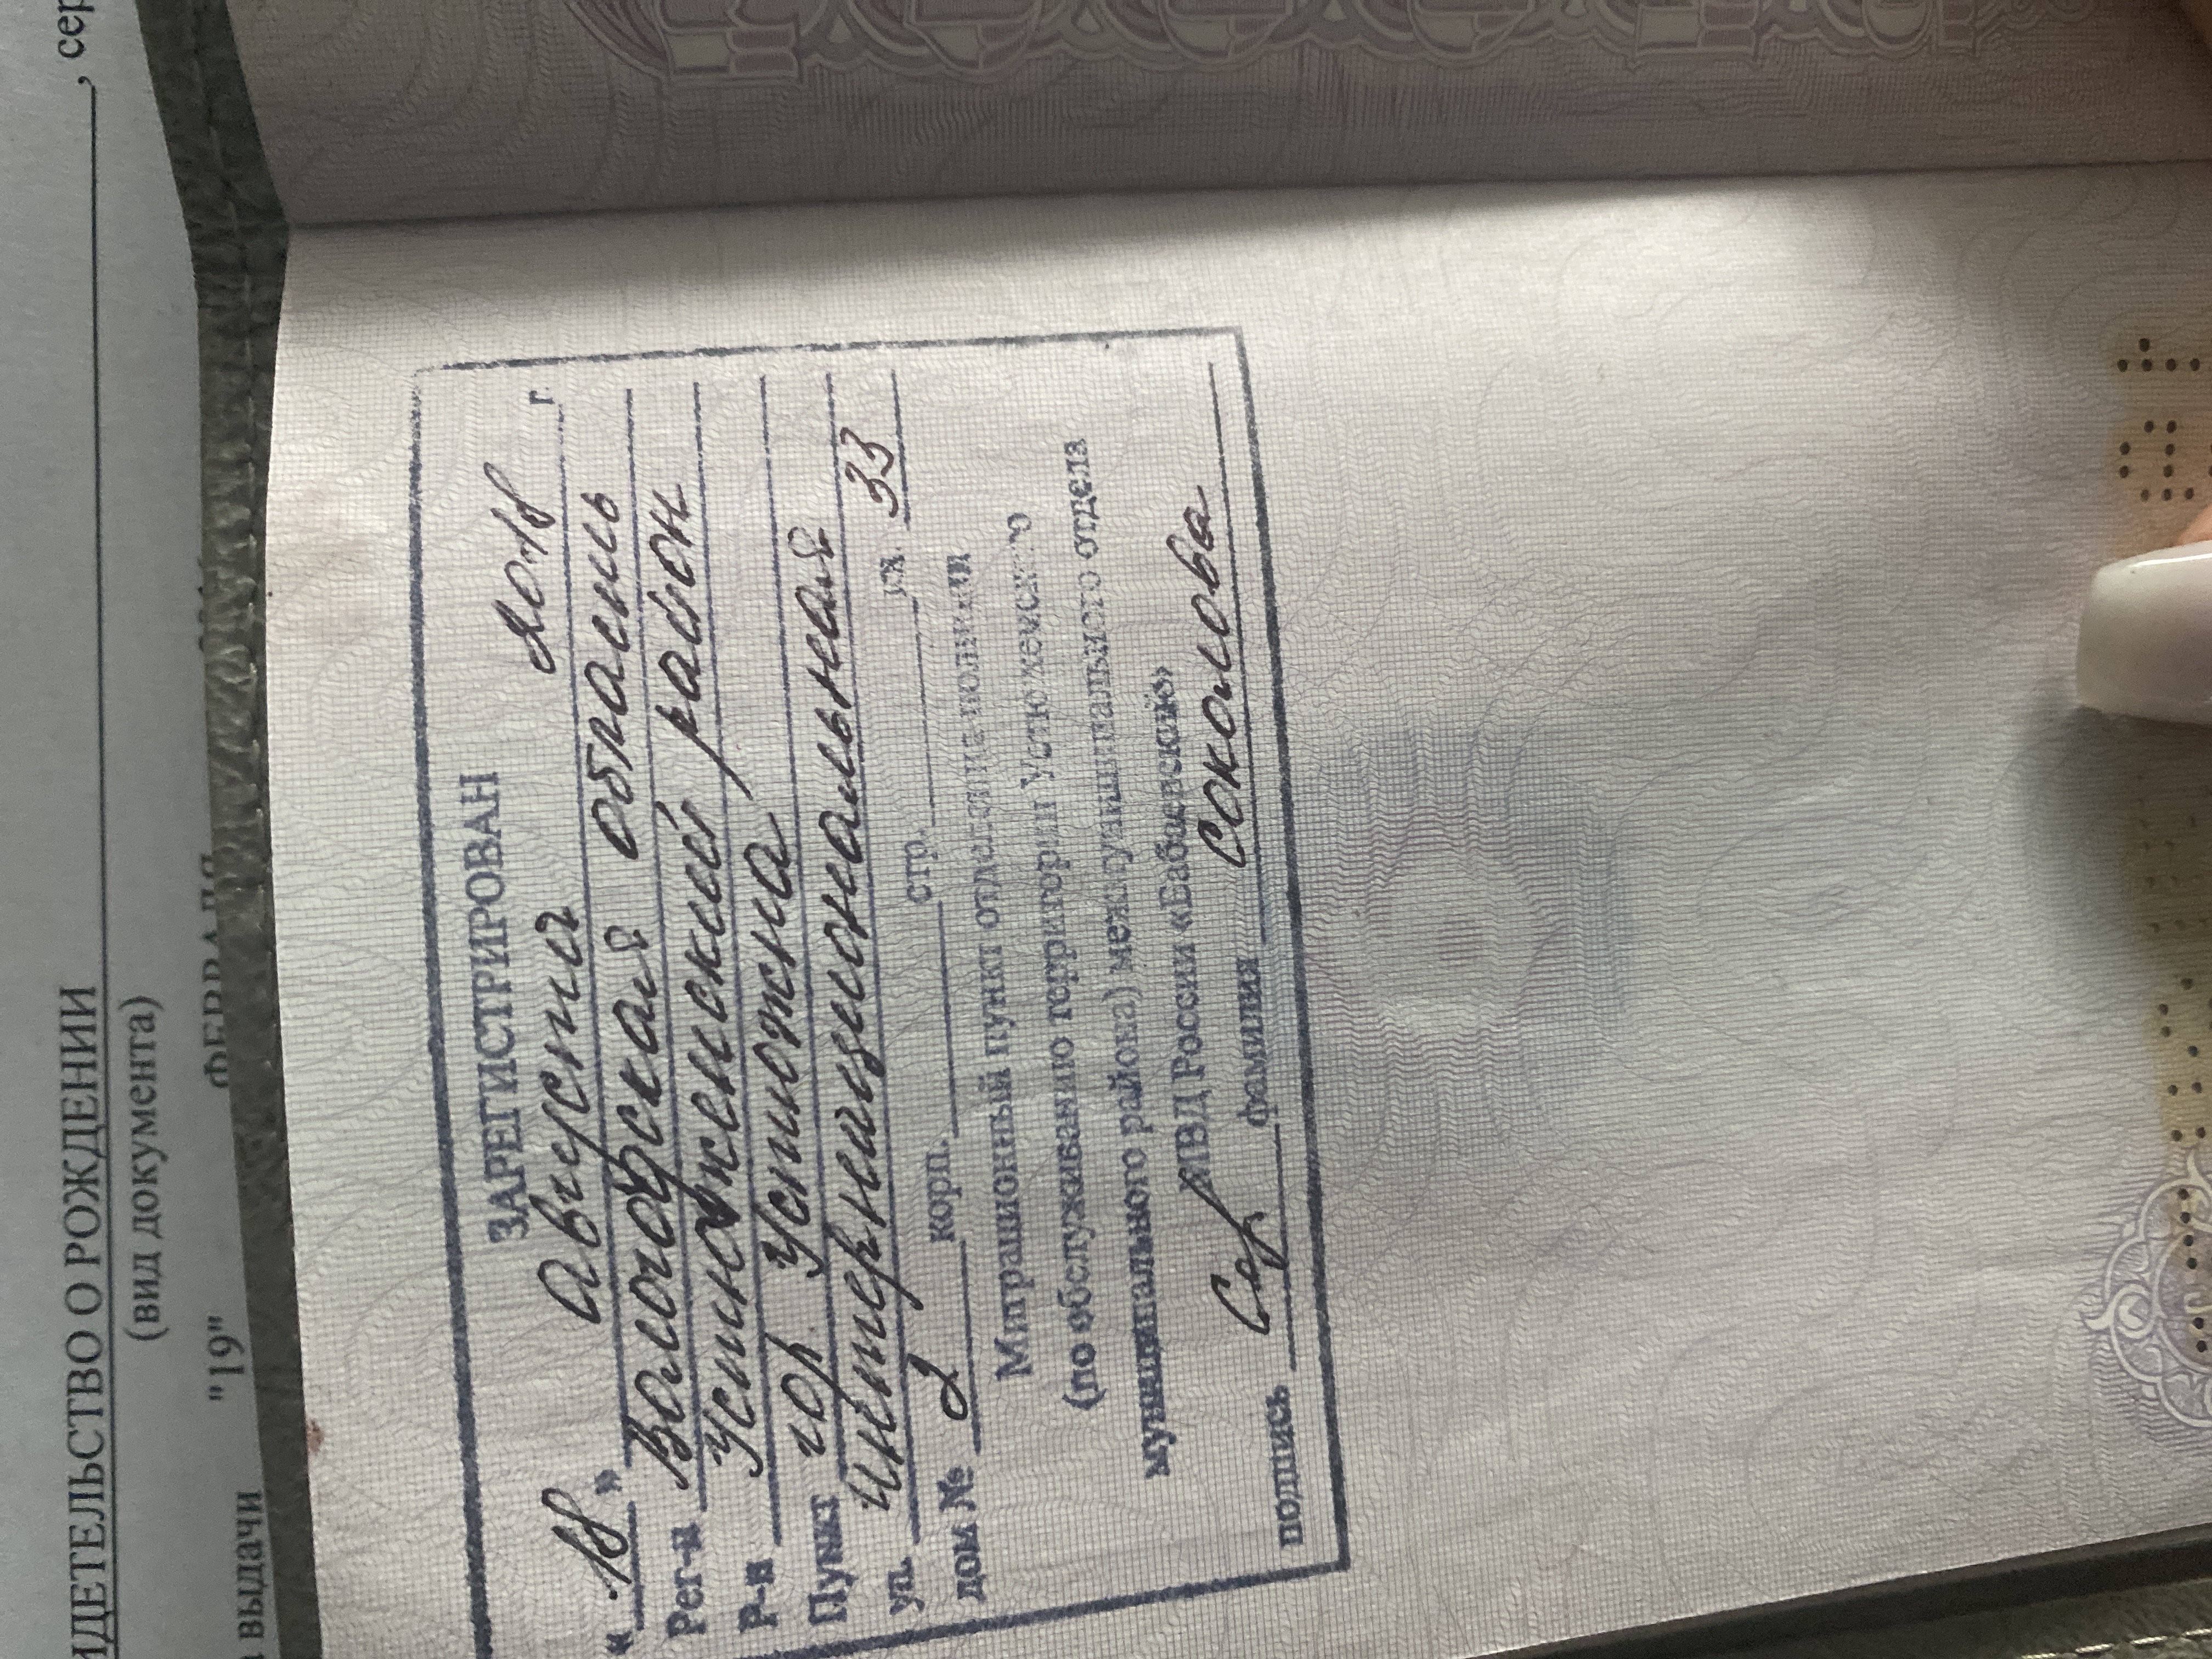 ИДЕТЕЛЬСТВО О РОЖДЕНИИ , сер
(вид документа)
выдачи "19" ФЕВРАЛЯ
ЗАРЕГИСТРИРОВАН
« 18 » августа 2018 г.
Рег-н Вологодская область
Р-н Устюженский район
Пункт гор. Устюжна
ул. Интернациональная
дом № 2 корп. стр. кв. 33
Миграционный пункт отделения полиции
(по обслуживанию территории Устюженского
муниципального района) межмуниципального отдела
МВД России «Бабаевский»
подпись фамилия Соколова